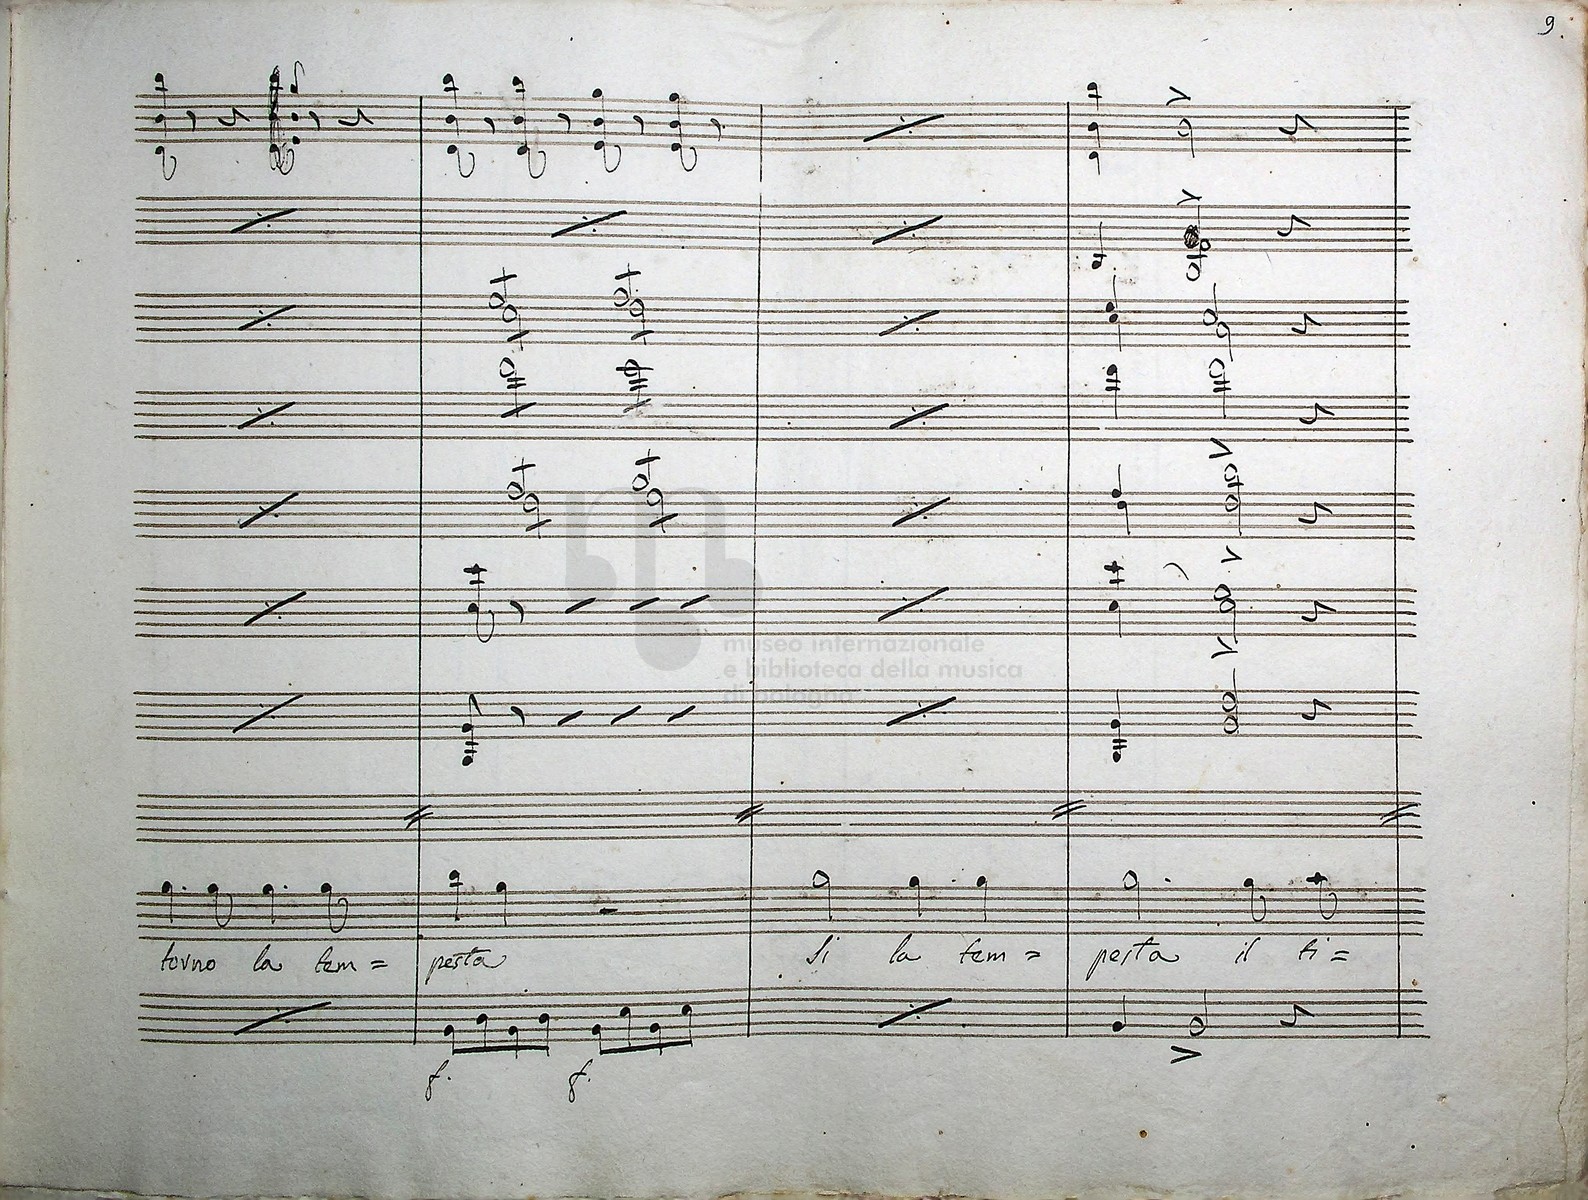 9.
museo internazionale
e biblioteca della musica
di bologna
torno la tem= pesta si la tem= pesta il ti=
f. f.